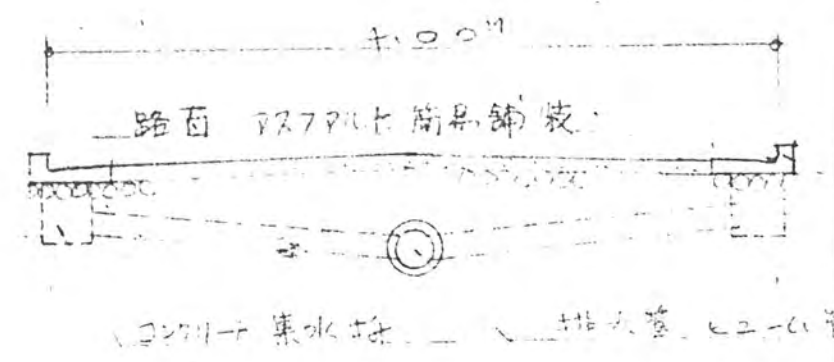 4.00M
路面 アスファルト簡易舗装
コンクリート集水桝 排水管 ヒューム管